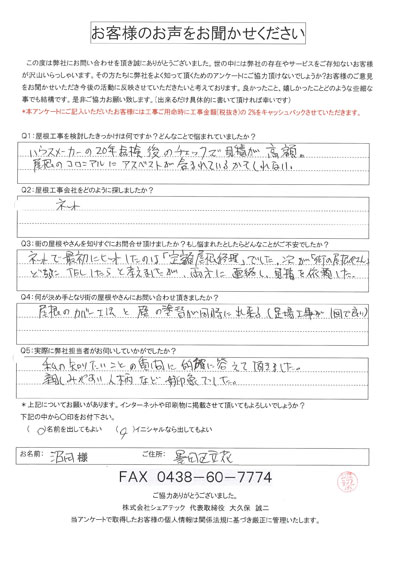 お客様のお声をお聞かせください
この度は弊社にお問い合わせを頂き誠にありがとうございました。世の中には弊社の存在やサービスをご存知ないお客様
が沢山いらっしゃいます。その方たちに弊社をよく知って頂くためのアンケートにご協力頂けないでしょうか?お客様のご意見
をお聞かせいただき今後の活動に反映させていただきたいと考えております。良かったこと、嬉しかったことどのような些細な
事でも結構です。是非ご協力お願い致します。(出来るだけ具体的に書いて頂ければ幸いです)
*本アンケートにご記入いただいたお客様には工事ご用命時に工事金額(税抜き)の2%をキャッシュバックさせていただきます。
Q1:屋根工事を検討したきっかけは何ですか?どんなことで悩まれていましたか?
ハウスメーカーの20年点検後のチェックで見積が高額。
屋根のコロニアルにアスベストが含まれているかもしれない。
Q2:屋根工事会社をどのように探しましたか?
ネット
Q3:街の屋根やさんを知りすぐにお問合せ頂けましたか?もし悩まれたとしたらどんなことがご不安でしたか?
ネットで最初にヒットしたのは「定額屋根修理」でした、次が「街の屋根やさん」
どちらにTELしたらと考えましたが、両方に連絡し、見積を依頼した。
Q4:何が決め手となり街の屋根やさんにお問い合わせ頂きましたか?
屋根のカバー工法と壁の塗装が同時に出来る(足場工事が1回で良い)
Q5:実際に弊社担当者がお伺いしていかがでしたか?
私の知りたいことの質問に的確に答えて頂きました。
親しみやすい人柄など好印象でした。
*上記についてお願いがあります。インターネットや印刷物に掲載させて頂いてもよろしいでしょうか?
下記の中から〇印をお付下さい。
( 〇名前を出してもよい ( )イニシャルなら出してもよい
お名前: 沼田 様 ご住所: 墨田区立花
FAX 0438-60-7774
ご協力ありがとうございました。
株式会社シェアテック 代表取締役 大久保 誠二
当アンケートで取得したお客様の個人情報は関係法規に基づき厳正に管理いたします。